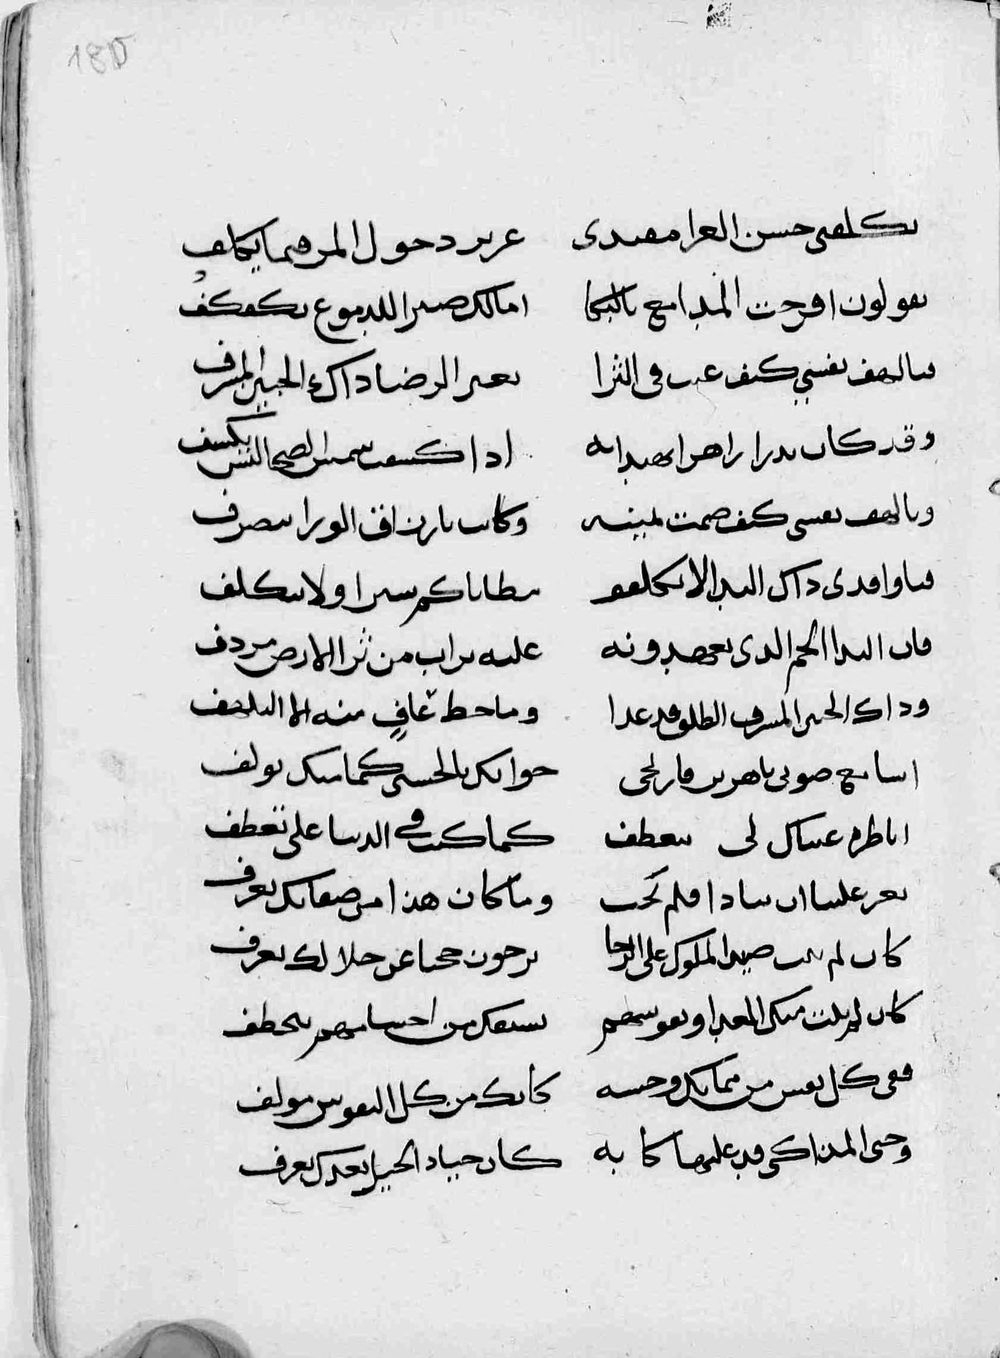 180
يكلفني حسن العزا مفندي عزيز دخول المرء فيما يكلف
يقولون اقرحت المدامع بالبكا امالك صبرا للدموع يكفكف
فيالهف نفسي كيف غيب في الثرا بغير الرضا ذاك الجبين المشرف
وقد كان بدرا زاهرا يهتدا به اذا كسفت شمس الضحا ليس يكسف
ويالهف نفسي كيف صمت يمينه وكانت بارزاق الورا تتصرف
فيا وافدي ذاك الندا لا تكلفو مطاياكم سيرا ولا تتكلف
فان الندا الجم الذي تعهدونه عليه تراب من ثرا الارض مردف
وذاك الجبين المشرق الطلق قد غدا وما حظ عاف منه الا التلهف
اسامع صوتي يا هزبر فارتجي جوابك بالحسنى كما منك تولف
اناظرة عيناك لي بتعطف كما كنت في الدنيا علي تعطف
يعز علينا ان تنادا فلم تجب وما كان هذا من صفاتك يعرف
كان لم تبت صيد الملوك على الرجا يرجون محيا عن جلالك يعرف
كان لم يبت منك العدا ونفوسهم بسيفك من اجسامهم تتخطف
ففي كل نفس من مماتك وحسه كانك من كل النفوس مولف
وحتى المذاكي قد علتها كابه كان جياد الخيل بعدك تعرف